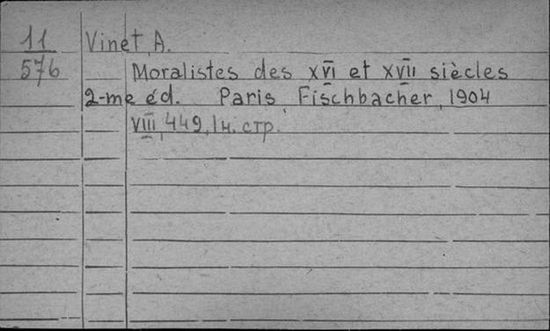 11 Vinet, A.
576 Moralistes des XVI et XVII siècles
2-me éd. Paris, Fischbacher, 1904
VIII, 449, 1 н. стр.